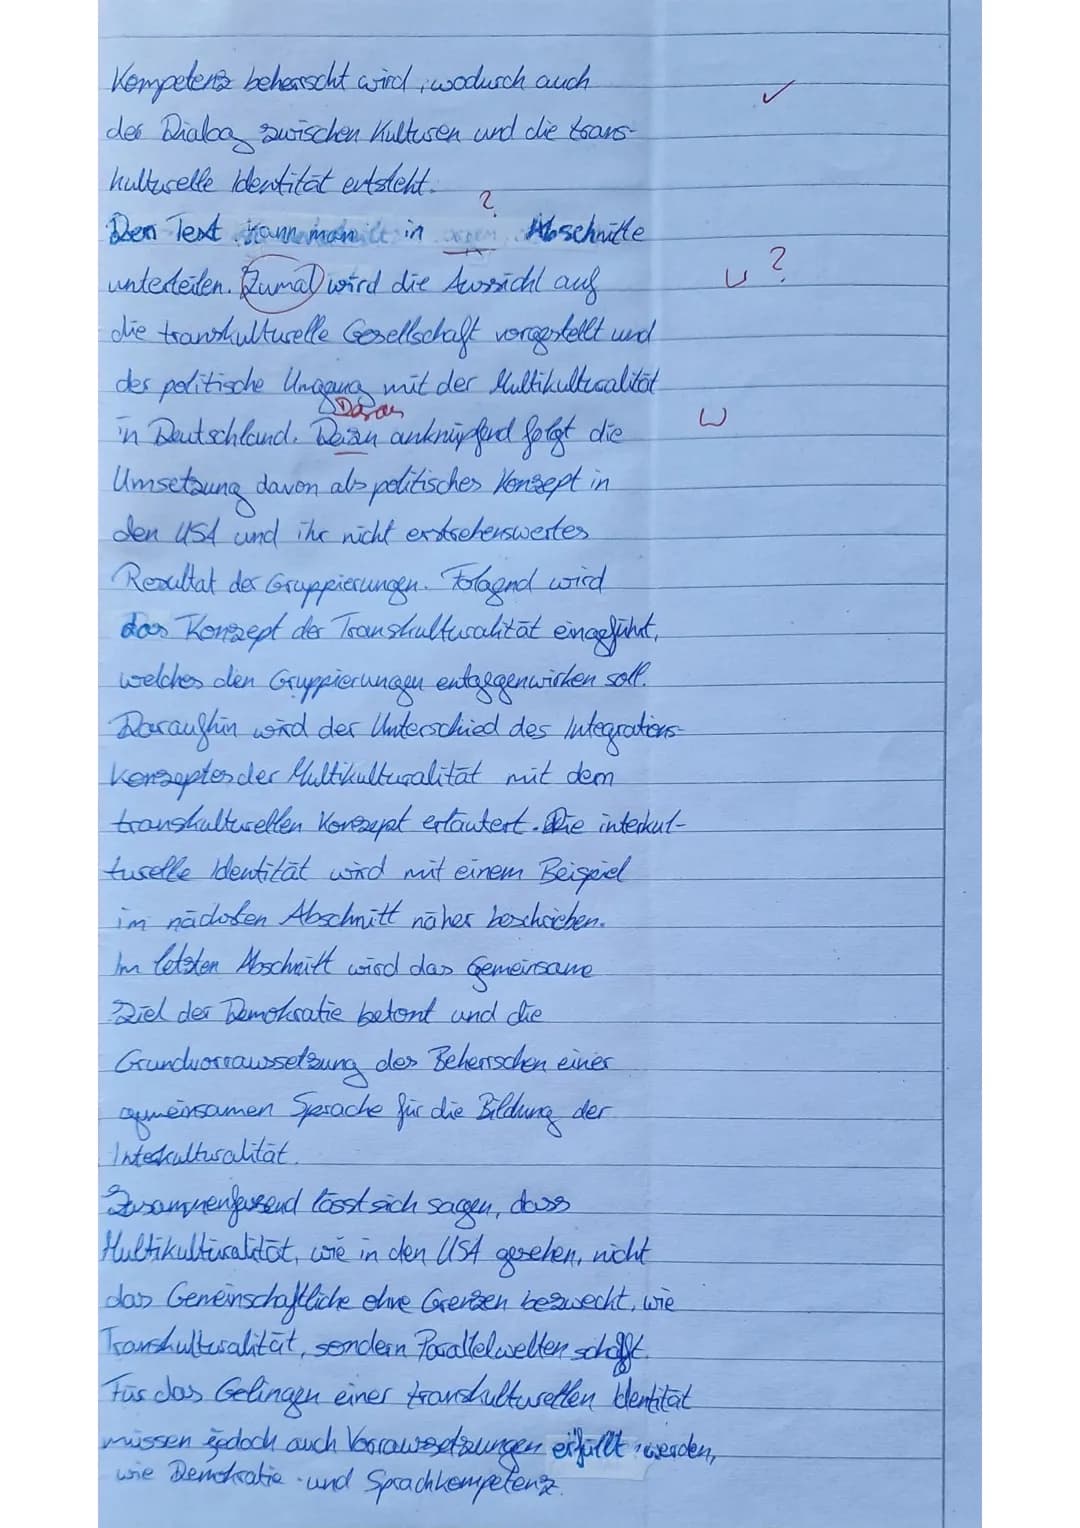 Kompetenz beherrscht wird, wodurch auch
der Dialog zwischen Kulturen und die trans-
kulturelle Identität entsteht.
?
Den Text kann man in Abschnitte
unterteilen. Zumal wird die Aussicht auf
die transkulturelle Gesellschaft vorgestellt und
der politische Umgang mit der Multikulturalität
Daran
in Deutschland. anknüpfend folgt die
Umsetzung davon als politisches Konzept in
den USA und ihr nicht erstrebenswertes
Resultat der Gruppierungen. Folgend wird
das Konzept der Transkulturalität eingeführt,
welches den Gruppierungen entgegenwirken soll.
Daraufhin wird der Unterschied des Integrations-
konzeptes der Multikulturalität mit dem
transkulturellen Konzept erläutert. Die interkul-
turelle Identität wird mit einem Beispiel
im nächsten Abschnitt näher beschrieben.
Im letzten Abschnitt wird das Gemeinsame
Ziel der Demokratie betont und die
Grundvorraussetzung des Beherrschen einer
gemeinsamen Sprache für die Bildung der
Interkulturalität.
Zusammenfassend lässt sich sagen, dass
Multikulturalität, wie in den USA gesehen, nicht
das Gemeinschaftliche ohne Grenzen bezweckt, wie
Transkulturalität, sondern Parallelwelten schafft.
Für das Gelingen einer transkulturellen Identität
müssen jedoch auch Vorraussetzungen erfüllt werden,
wie Demokratie und Sprachkompetenz.